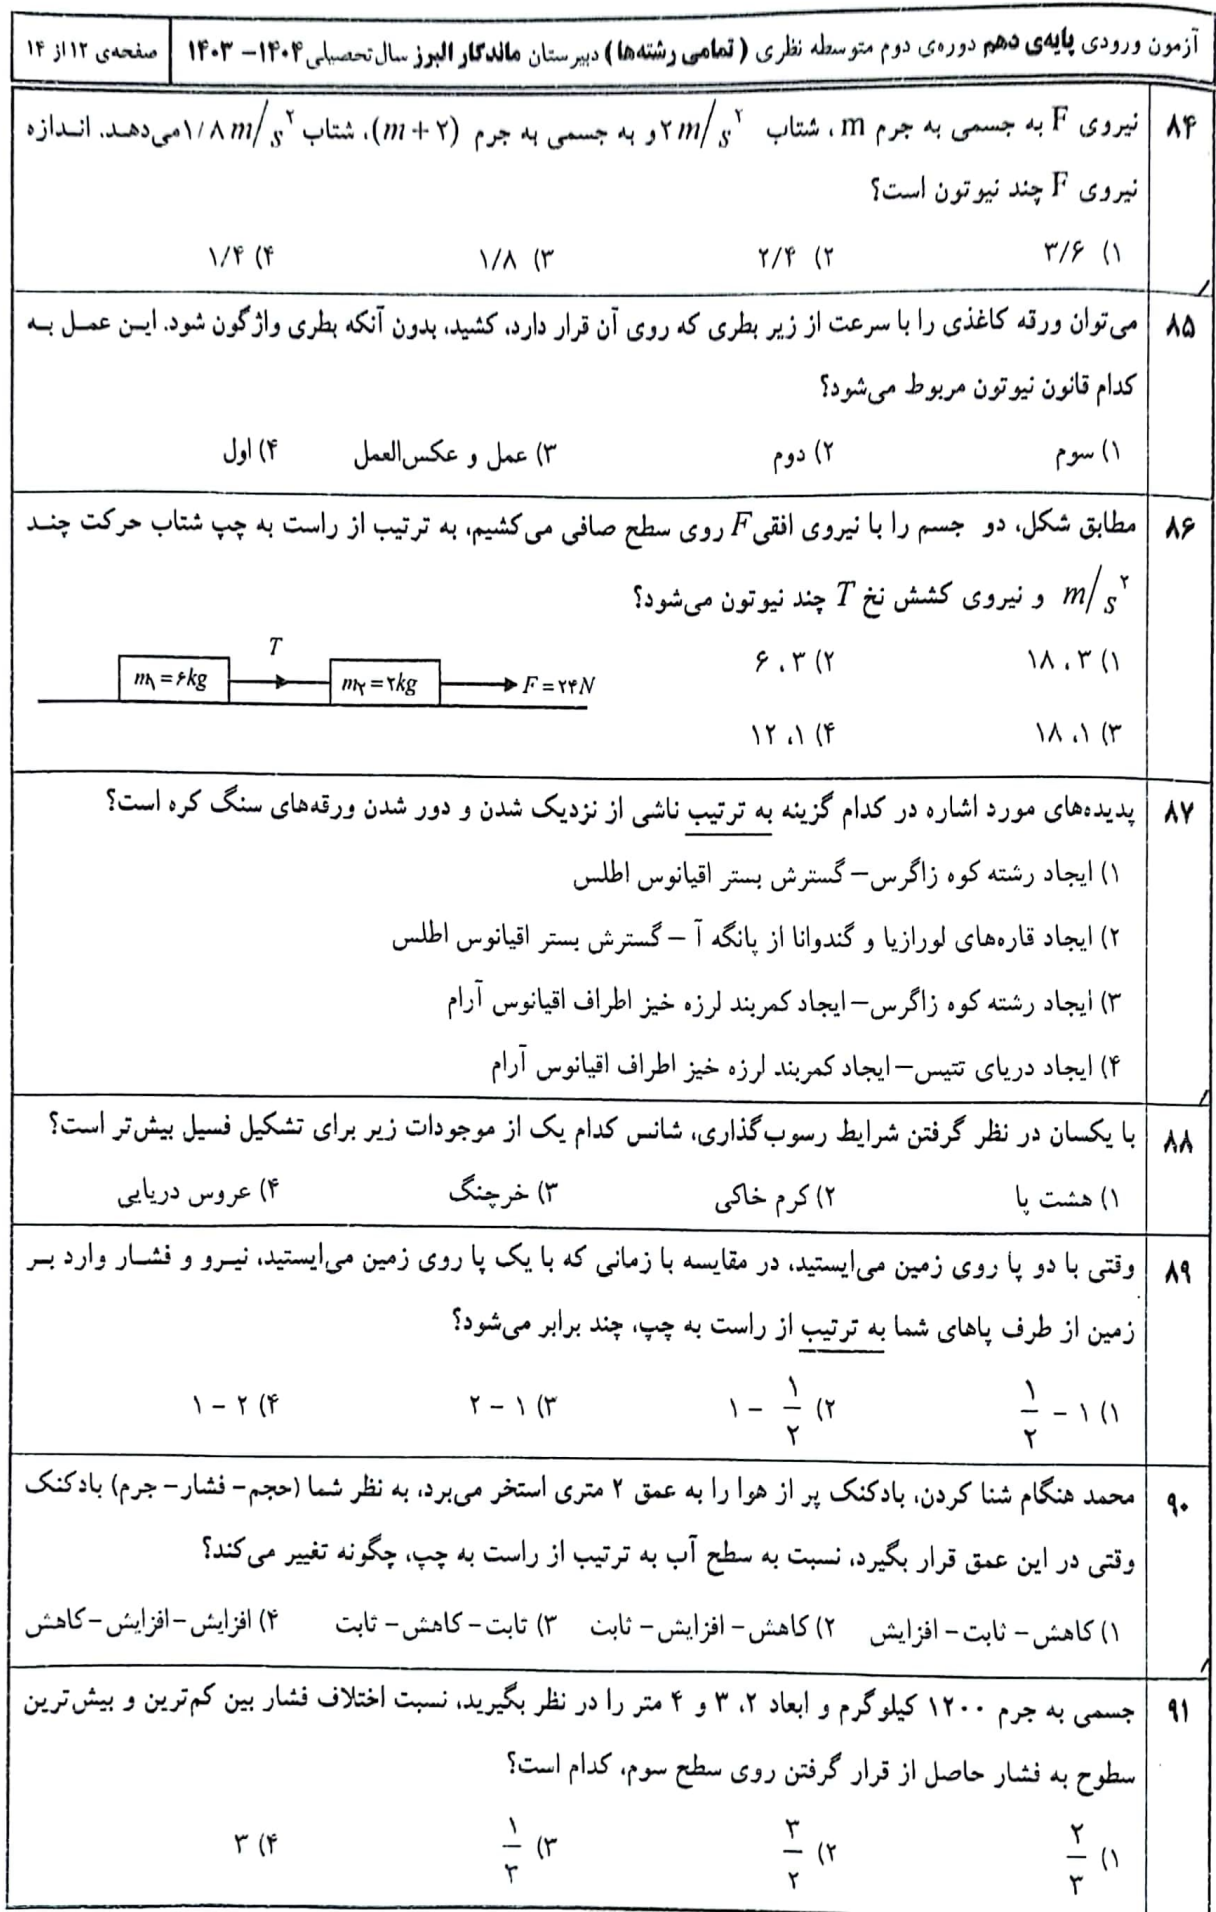 آزمون ورودی پایه‌ی دهم دوره‌ی دوم متوسطه نظری (تمامی رشته‌ها) دبیرستان ماندگار البرز سال تحصیلی ۱۴۰۴-۱۴۰۳ صفحه‌ی ۱۲ از ۱۴
۸۴ نیروی F به جسمی به جرم m، شتاب ۲ m/s^۲ و به جسمی به جرم (m+۲)، شتاب ۱/۸ m/s^۲ می‌دهد. اندازه
نیروی F چند نیوتون است؟
۱) ۳/۶ ۲) ۲/۴ ۳) ۱/۸ ۴) ۱/۴
۸۵ می‌توان ورقه کاغذی را با سرعت از زیر بطری که روی آن قرار دارد، کشید، بدون آنکه بطری واژگون شود. این عمل به
کدام قانون نیوتون مربوط می‌شود؟
۱) سوم ۲) دوم ۳) عمل و عکس‌العمل ۴) اول
۸۶ مطابق شکل، دو جسم را با نیروی افقی F روی سطح صافی می‌کشیم، به ترتیب از راست به چپ شتاب حرکت چند
m/s^۲ و نیروی کشش نخ T چند نیوتون می‌شود؟
۱) ۳، ۱۸ ۲) ۳، ۶
۳) ۱، ۱۸ ۴) ۱، ۱۲
T
m۱=۶kg m۲=۲kg F=۲۴N
۸۷ پدیده‌های مورد اشاره در کدام گزینه به ترتیب ناشی از نزدیک شدن و دور شدن ورقه‌های سنگ کره است؟
۱) ایجاد رشته کوه زاگرس – گسترش بستر اقیانوس اطلس
۲) ایجاد قاره‌های لورازیا و گندوانا از پانگه آ – گسترش بستر اقیانوس اطلس
۳) ایجاد رشته کوه زاگرس – ایجاد کمربند لرزه خیز اطراف اقیانوس آرام
۴) ایجاد دریای تتیس – ایجاد کمربند لرزه خیز اطراف اقیانوس آرام
۸۸ با یکسان در نظر گرفتن شرایط رسوب‌گذاری، شانس کدام یک از موجودات زیر برای تشکیل فسیل بیش‌تر است؟
۱) هشت پا ۲) کرم خاکی ۳) خرچنگ ۴) عروس دریایی
۸۹ وقتی با دو پا روی زمین می‌ایستید، در مقایسه با زمانی که با یک پا روی زمین می‌ایستید، نیرو و فشار وارد بر
زمین از طرف پاهای شما به ترتیب از راست به چپ، چند برابر می‌شود؟
۱) ۱ – ۱/۲ ۲) ۱/۲ – ۱ ۳) ۱ – ۲ ۴) ۲ – ۱
۹۰ محمد هنگام شنا کردن، بادکنک پر از هوا را به عمق ۲ متری استخر می‌برد، به نظر شما (حجم- فشار- جرم) بادکنک
وقتی در این عمق قرار بگیرد، نسبت به سطح آب به ترتیب از راست به چپ، چگونه تغییر می‌کند؟
۱) کاهش – ثابت – افزایش ۲) کاهش – افزایش – ثابت ۳) ثابت – کاهش – ثابت ۴) افزایش – افزایش – کاهش
۹۱ جسمی به جرم ۱۲۰۰ کیلوگرم و ابعاد ۲، ۳ و ۴ متر را در نظر بگیرید، نسبت اختلاف فشار بین کم‌ترین و بیش‌ترین
سطوح به فشار حاصل از قرار گرفتن روی سطح سوم، کدام است؟
۱) ۲/۳ ۲) ۳/۲ ۳) ۱/۳ ۴) ۳